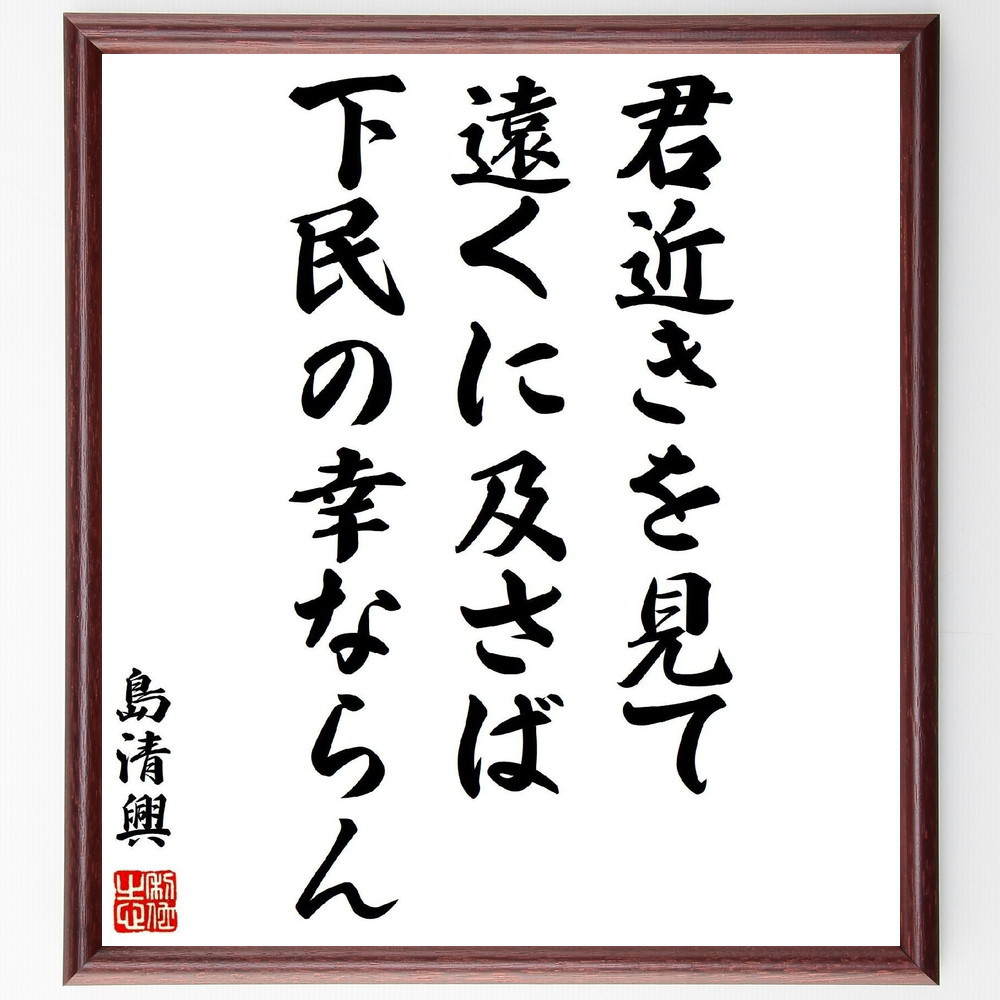 君近きを見て
遠くに及さば
下民の幸ならん
島清興